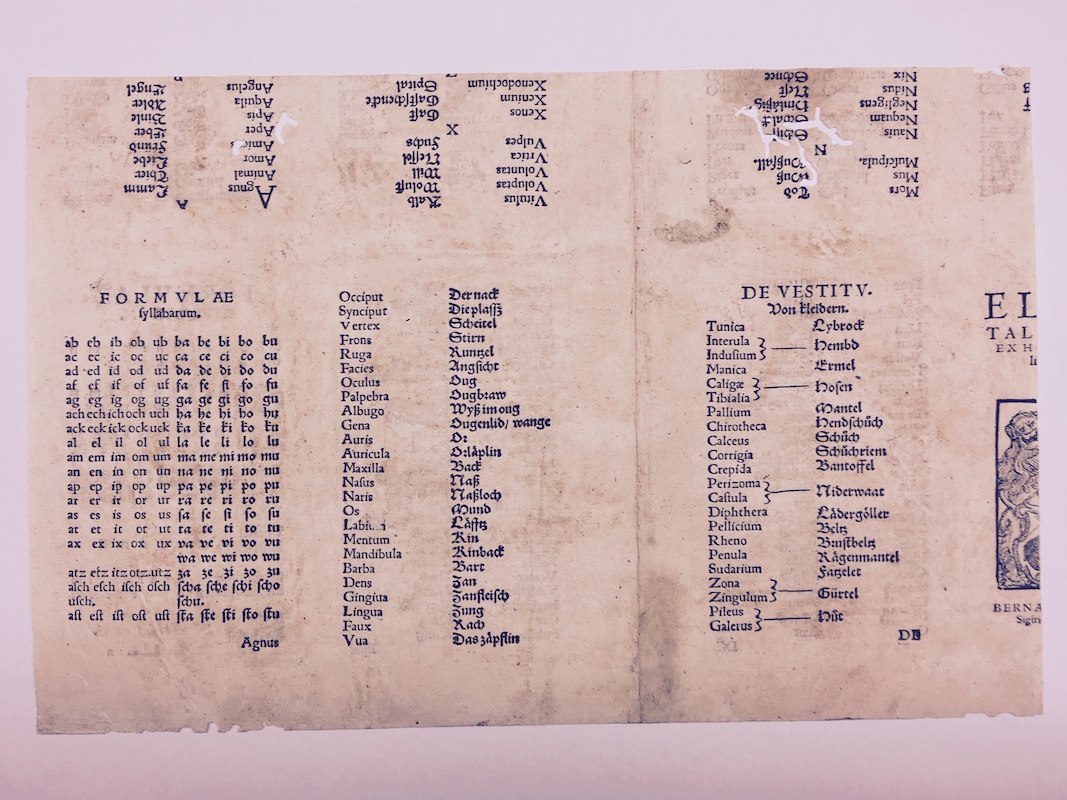 FORMVLAE
syllabarum.
ab eb ib ob ub ba be bi bo bu
ac ec ic oc uc ca ce ci co cu
ad ed id od ud da de di do du
af ef if of uf fa fe fi fo fu
ag eg ig og ug ga ge gi go gu
ach ech ich och uch ha he hi ho hu
ack eck ick ock uck ka ke ki ko ku
al el il ol ul la le li lo lu
am em im om um ma me mi mo mu
an en in on un na ne ni no nu
ap ep ip op up pa pe pi po pu
ar er ir or ur ra re ri ro ru
as es is os us sa se si so su
at et it ot ut ta te ti to tu
ax ex ix ox ux va ve vi vo vu
wa we wi wo wu
atz etz itz otz utz za ze zi zo zu
asch esch isch osch scha sche schi scho
usch. schu.
ast est ist ost ust sta ste sti sto stu
Agnus
Occiput Der nack
Synciput Die plassz
Vertex Scheitel
Frons Stirn
Ruga Runtzel
Facies Angsicht
Oculus Oug
Palpebra Ougbraw
Albugo Wyß im oug
Gena Ougenlid/ wange
Auris Or
Auricula Orläplin
Maxilla Back
Nasus Naß
Naris Naßloch
Os Mund
Läfftz
Mentum Kin
Mandibula Kinback
Barba Bart
Dens Zan
Gingiua Zanfleisch
Lingua Zung
Faux Rach
Vua Das zäpflin
DE VESTITV.
Von kleidern.
Tunica Lybrock
Interula Hembd
Indusium
Manica Ermel
Caligæ Hosen
Tibialia
Pallium Mantel
Chirotheca Hendschůch
Calceus Schůch
Corrigia Schůchriem
Crepida Bantoffel
Perizoma Niderwaat
Castula
Diphthera Lädergöller
Pellicium Beltz
Rheno Brustbeltz
Penula Rägenmantel
Sudarium Fatzelet
Zona Gürtel
Zingulum
Pileus Hůt
Galerus
DE
EL
TAL
EX H
BERNA
Sigfri
A
Agnus Lamm
Animal Thier
Amor Liebe
Fründ
Aper Eber
Apis Binle
Aquila Adler
Angelus Engel
Vitulus Kalb
Voluptas Wolust
Voluntas Will
Vrtica Nessel
Vulpes Fuchs
X
Xenos Gast
Xenium Gastschencke
Xenodochium Spital
Mors Tod
Mus
Muscipula.
N
Nauis Schiff
Nequam
Negligens Hinläßig
Nidus Nest
Nix Schnee